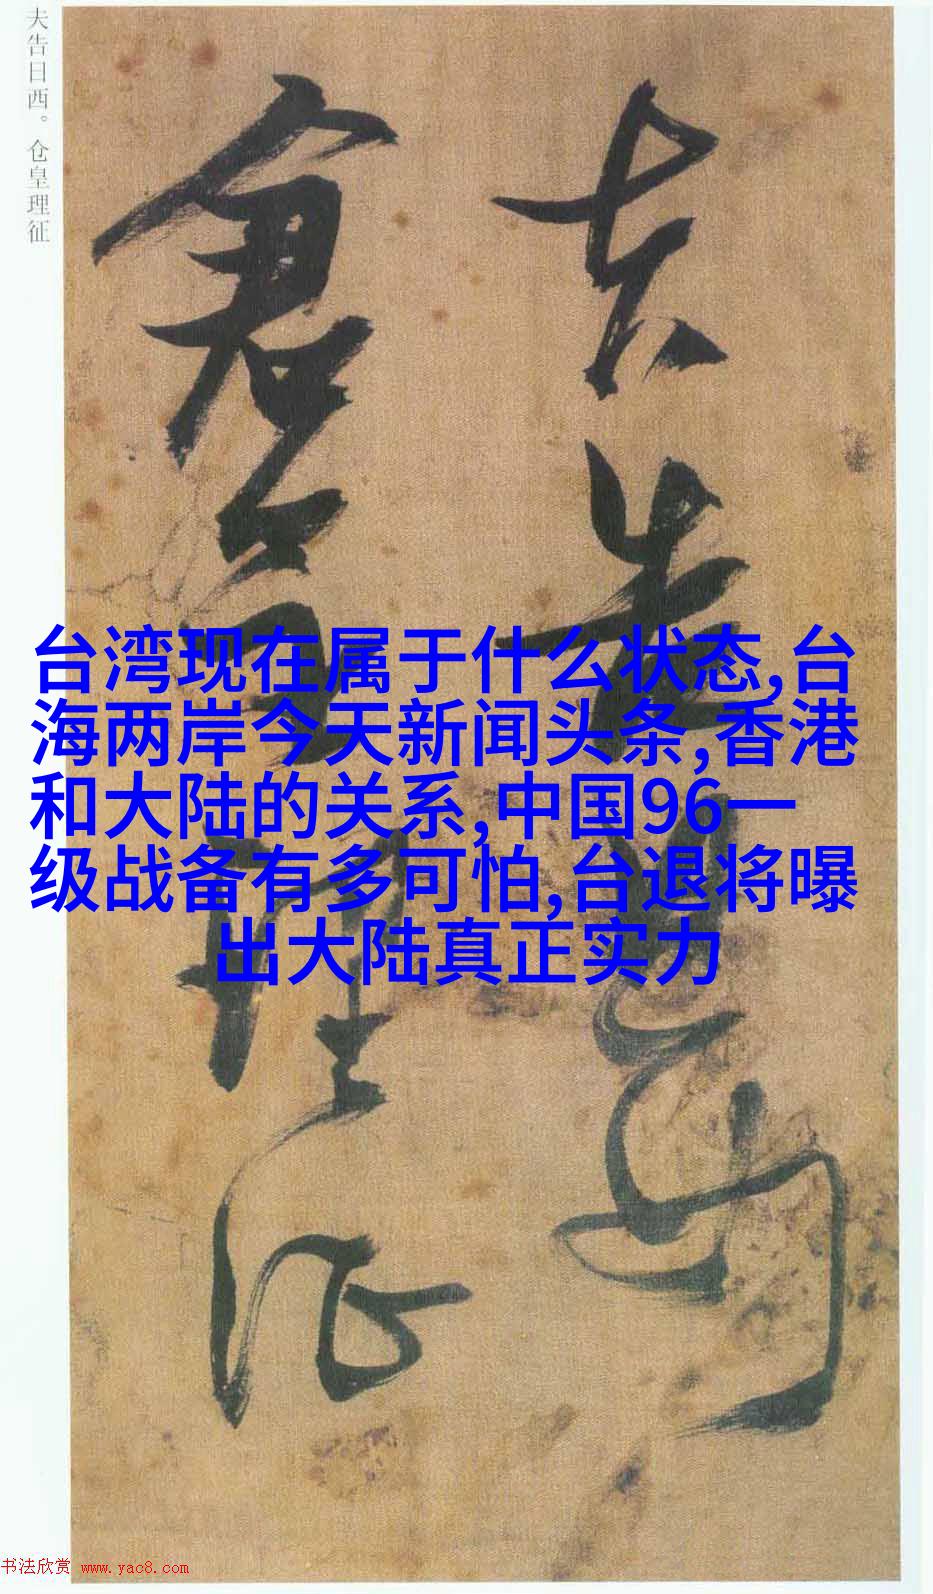 夫告日西。仓皇理征
台湾现在属于什么状态,台
海两岸今天新闻头条,香港
和大陆的关系,中国96一
级战备有多可怕,台退将曝
出大陆真正实力
书法欣赏 www.yac8.com